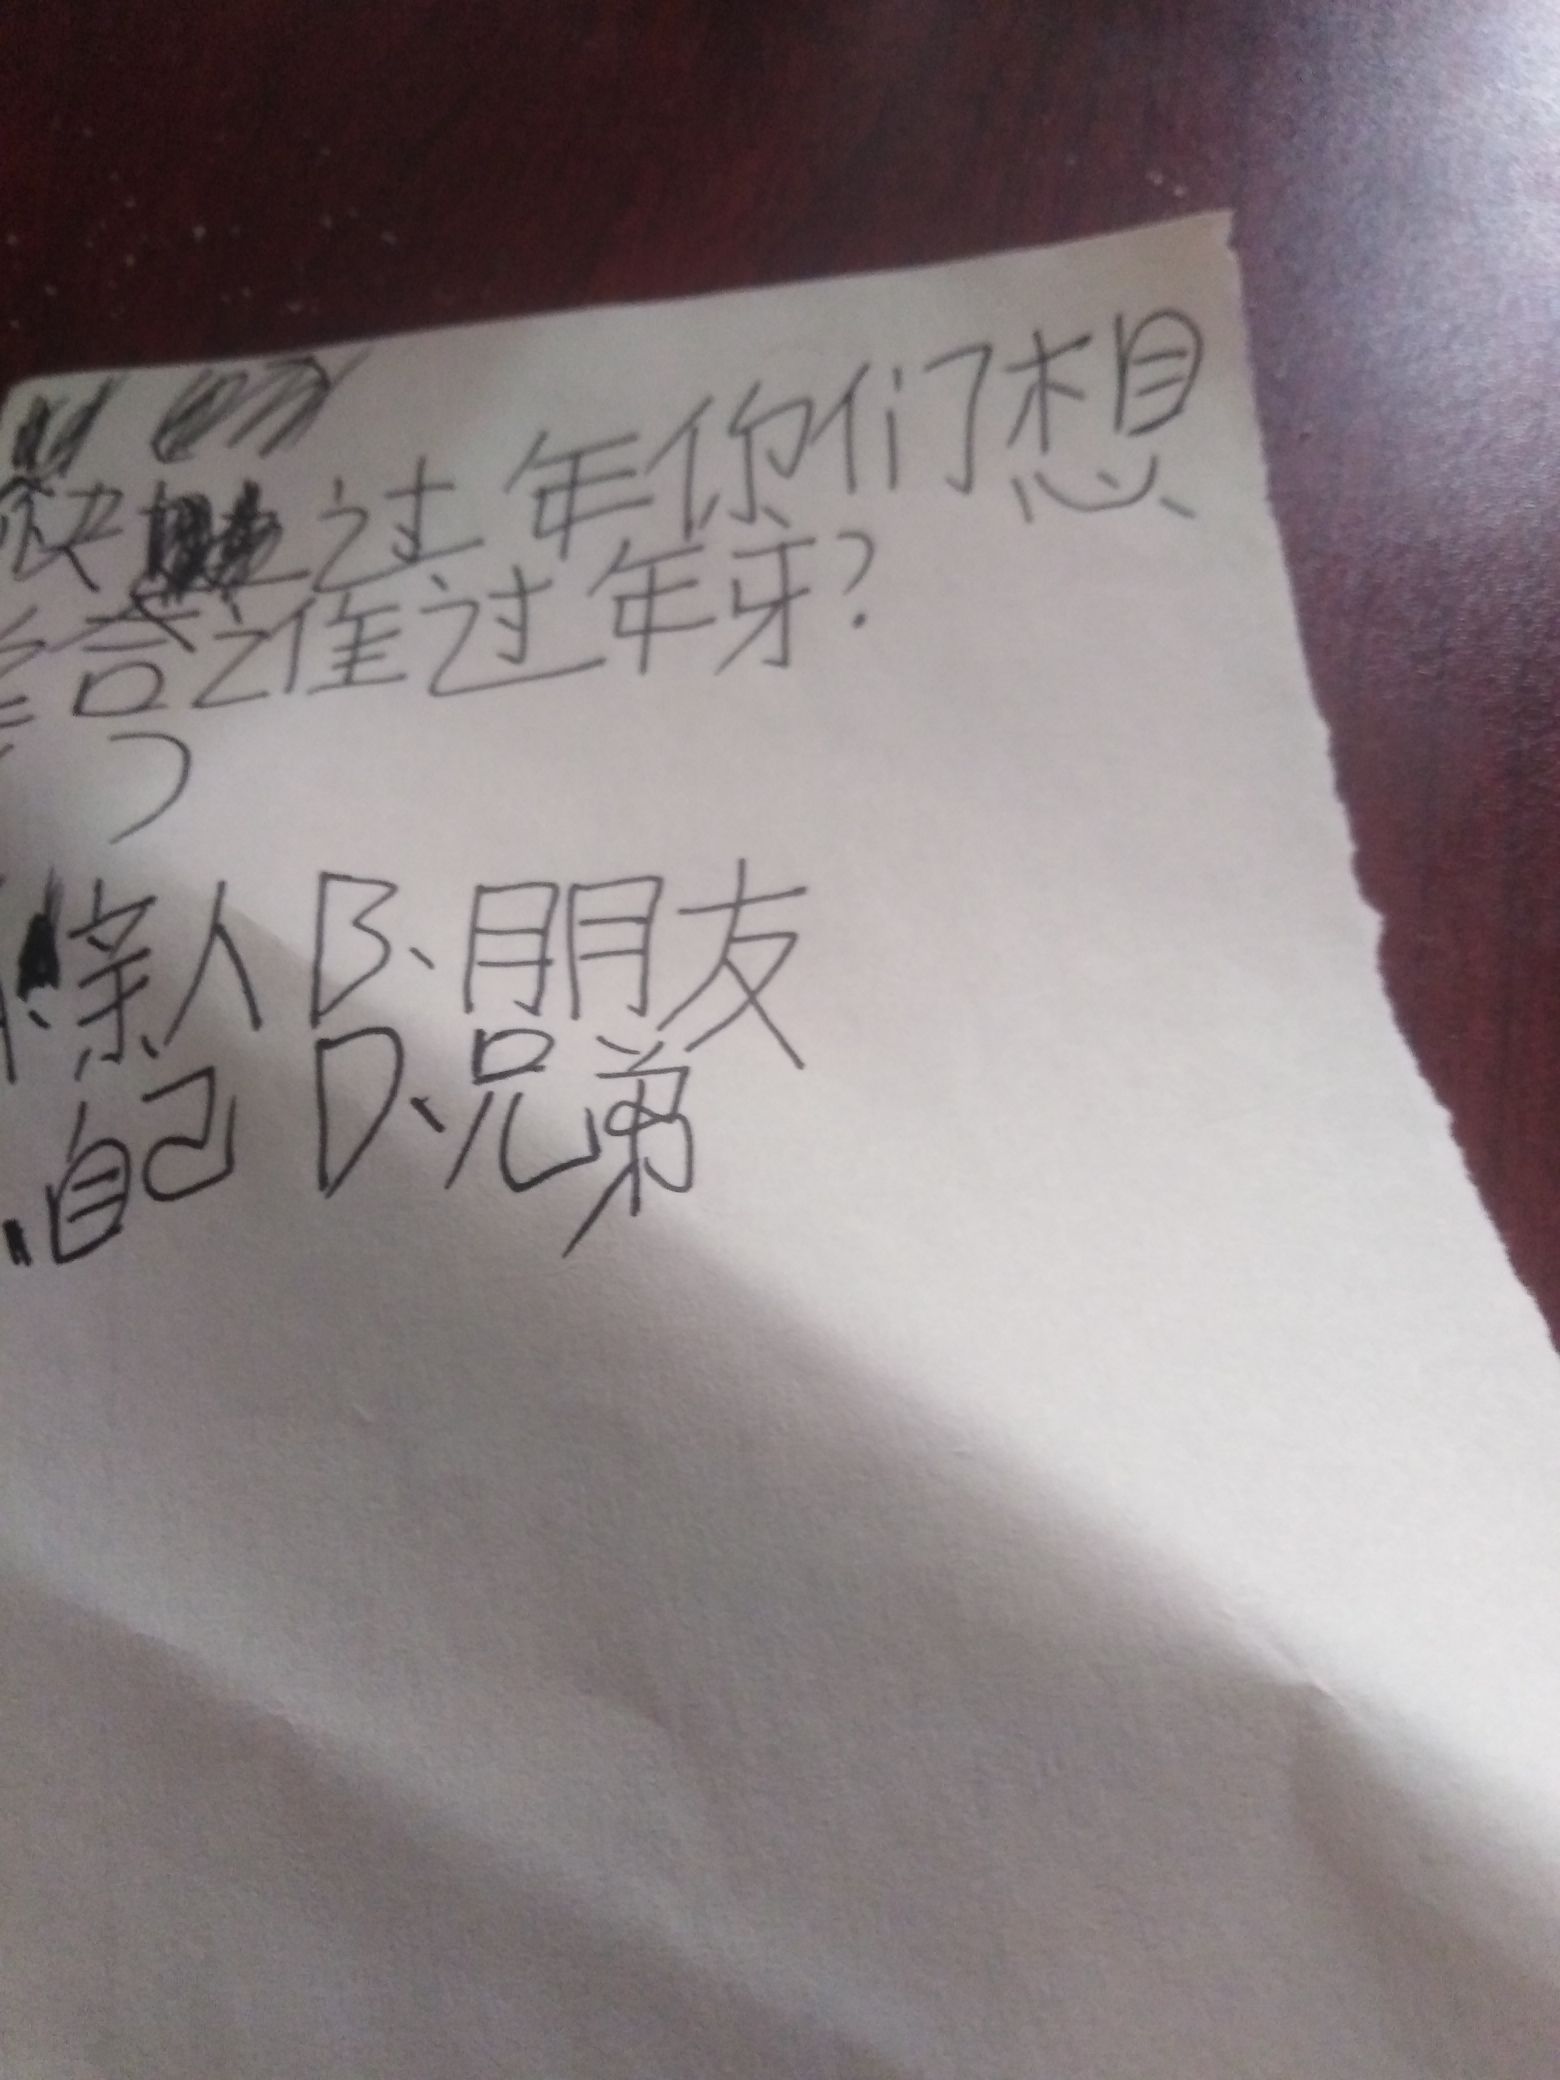 快过年你们想
给谁过年牙?
)
亲人 B、朋友
自己 D、兄弟